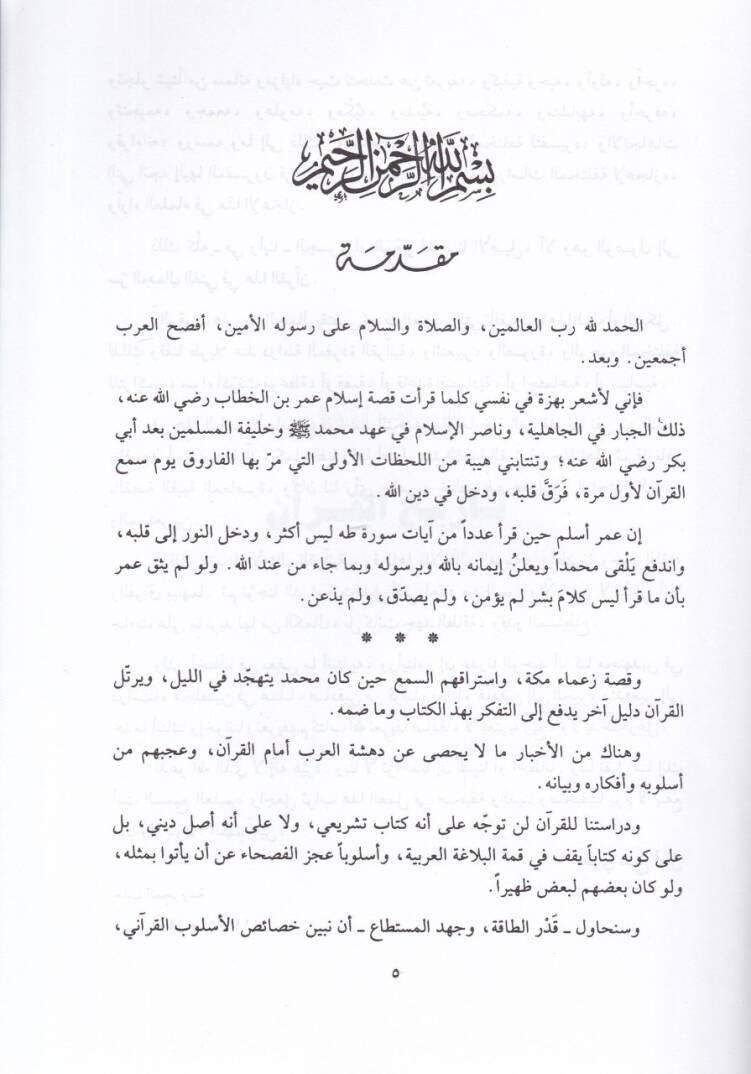 بسم الله الرحمن الرحيم
مقدمة
الحمد لله رب العالمين، والصلاة والسلام على رسوله الأمين، أفصح العرب
أجمعين. وبعد.
فإني لأشعر بهزة في نفسي كلما قرأت قصة إسلام عمر بن الخطاب رضي الله عنه،
ذلك الجبار في الجاهلية، وناصر الإسلام في عهد محمد ﷺ وخليفة المسلمين بعد أبي
بكر رضي الله عنه؛ وتنتابني هيبة من اللحظات الأولى التي مرّ بها الفاروق يوم سمع
القرآن لأول مرة، فَرَقَّ قلبه، ودخل في دين الله.
إن عمر أسلم حين قرأ عدداً من آيات سورة طه ليس أكثر، ودخل النور إلى قلبه،
واندفع يَلْقى محمداً ويعلنُ إيمانه بالله وبرسوله وبما جاء من عند الله. ولو لم يثق عمر
بأن ما قرأ ليس كلامَ بشر لم يؤمن، ولم يصدّق، ولم يذعن.
* * *
وقصة زعماء مكة، واستراقهم السمع حين كان محمد يتهجّد في الليل، ويرتّل
القرآن دليل آخر يدفع إلى التفكر بهذ الكتاب وما ضمه.
وهناك من الأخبار ما لا يحصى عن دهشة العرب أمام القرآن، وعجبهم من
أسلوبه وأفكاره وبيانه.
ودراستنا للقرآن لن توجّه على أنه كتاب تشريعي، ولا على أنه أصل ديني، بل
على كونه كتاباً يقف في قمة البلاغة العربية، وأسلوباً عجز الفصحاء عن أن يأتوا بمثله،
ولو كان بعضهم لبعض ظهيراً.
وسنحاول ـ قَدْر الطاقة، وجهد المستطاع ـ أن نبين خصائص الأسلوب القرآني،
٥